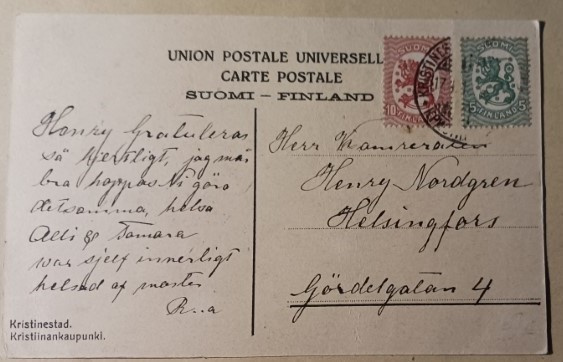 UNION POSTALE UNIVERSELL
CARTE POSTALE
SUOMI – FINLAND
SUOMI
10 FINLAND
SUOMI
5 FINLAND 5
KRISTINES
Henry Gratuleras
så hjertligt, jag mår
bra hoppas Ni göra
detsamma, helsa
Alli & Tamara
var sjelf innerligt
helsad af moster
R..a
Herr
Henry Nordgren
Helsingfors
Gördelgatan 4
Kristinestad.
Kristiinankaupunki.